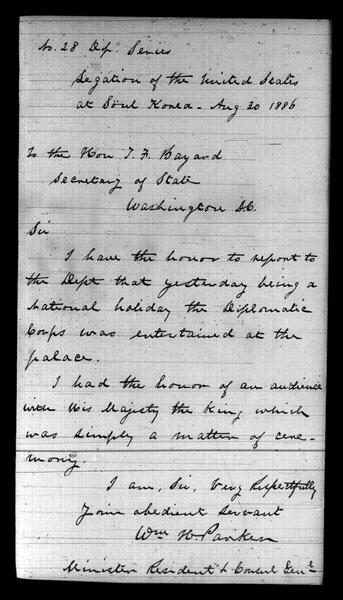 No. 28 Dip. Series
Legation of the United States
at Söul Korea - Aug 20 1886
To the Hon T. F. Bayard
Secretary of State
Washington D.C.
Sir
I have the honor to report to
the Dept that yesterday being a
National holiday the Diplomatic
Corps was entertained at the
palace.
I had the honor of an audience
with His Majesty the King which
was simply a matter of cere-
mony.
I am, Sir, Very Respectfully
Your obedient servant
Wm H. Parker
Minister Resident & Consul Genl